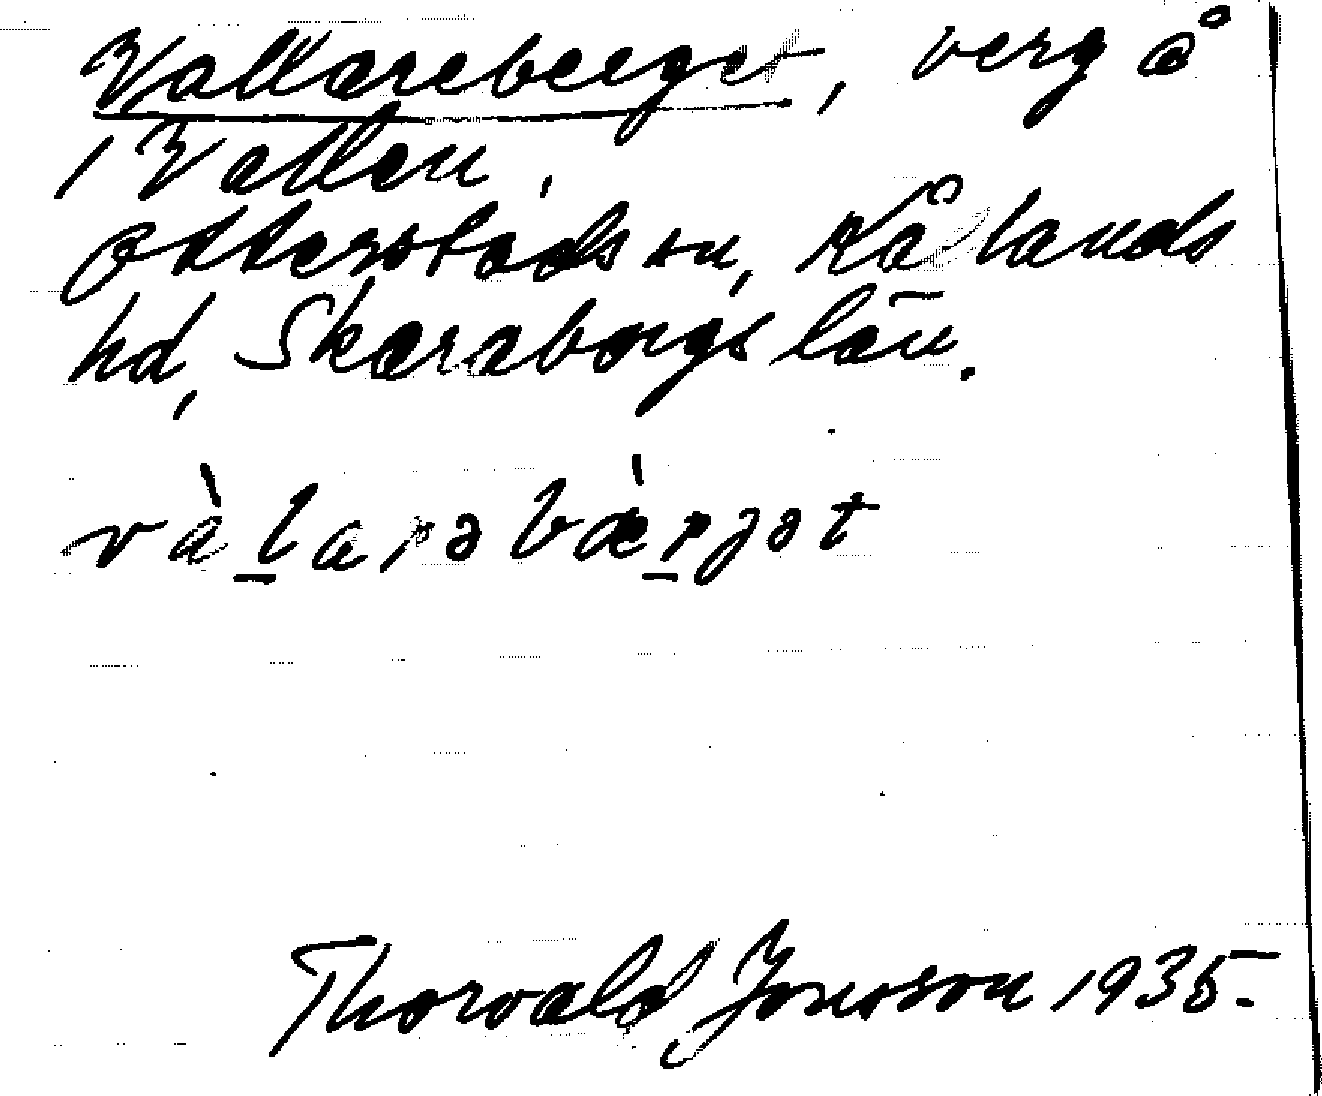 Vallareberget, berg å
/ Vallen,
Otterstads sn, Kålands
hd, Skaraborgs län.
và̀larəbæ̀rjət
Thorvald Jonsson 1935.